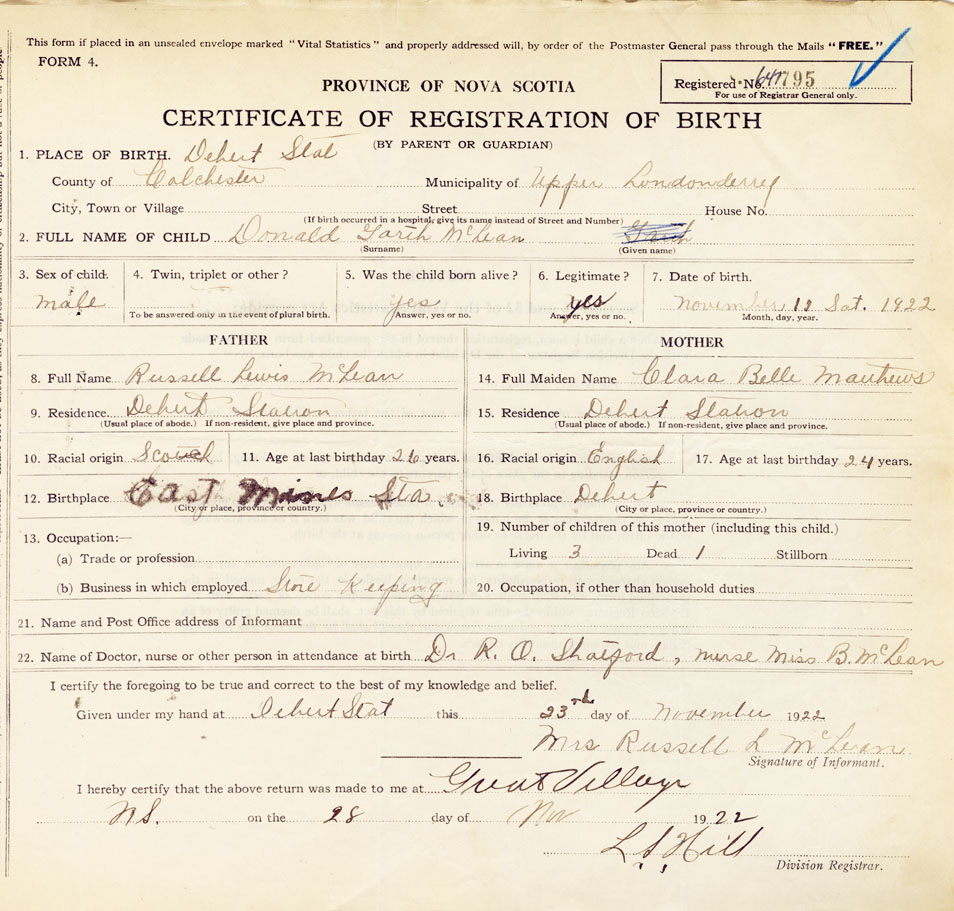 This form if placed in an unsealed envelope marked "Vital Statistics" and properly addressed will, by order of the Postmaster General pass through the Mails "FREE."
FORM 4.
PROVINCE OF NOVA SCOTIA
Registered No. 795
For use of Registrar General only.
CERTIFICATE OF REGISTRATION OF BIRTH
(BY PARENT OR GUARDIAN)
1. PLACE OF BIRTH. Debert Stat
County of Colchester Municipality of Upper Londonderry
City, Town or Village Street House No.
(If birth occurred in a hospital, give its name instead of Street and Number)
2. FULL NAME OF CHILD Donald Garth McLean
(Surname) (Given name)
3. Sex of child. 4. Twin, triplet or other? 5. Was the child born alive? 6. Legitimate? 7. Date of birth.
male yes yes November, 11 Sat. 1922
To be answered only in the event of plural birth. Answer, yes or no. Answer, yes or no. Month, day, year.
FATHER MOTHER
8. Full Name Russell Lewis McLean 14. Full Maiden Name Clara Belle Matthews
9. Residence Debert Station 15. Residence Debert Station
(Usual place of abode.) If non-resident, give place and province. (Usual place of abode.) If non-resident, give place and province.
10. Racial origin Scotch 11. Age at last birthday 26 years. 16. Racial origin English 17. Age at last birthday 24 years.
12. Birthplace East Mines Sta. 18. Birthplace Debert
(City or place, province or country.) (City or place, province or country.)
19. Number of children of this mother (including this child.)
13. Occupation:—
Living 3 Dead 1 Stillborn
(a) Trade or profession
(b) Business in which employed Store Keeping 20. Occupation, if other than household duties
21. Name and Post Office address of Informant
22. Name of Doctor, nurse or other person in attendance at birth Dr R. O. Shatford, nurse Miss B. McLean
I certify the foregoing to be true and correct to the best of my knowledge and belief.
Given under my hand at Debert Stat this 23rd day of November 1922
Mrs Russell L McLean
Signature of Informant.
I hereby certify that the above return was made to me at Great Village
N.S. on the 28 day of Nov 1922
L S Hill
Division Registrar.